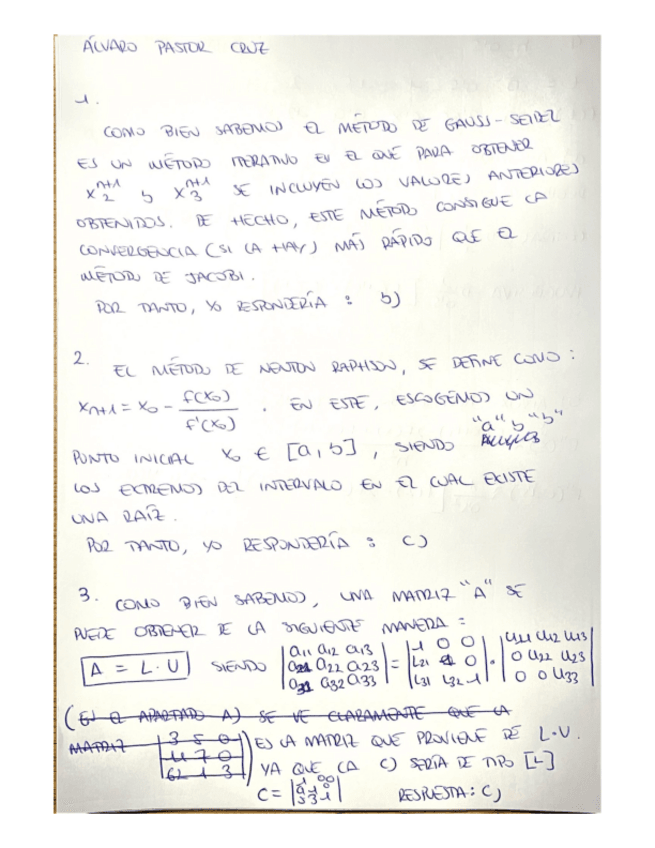 ÁLVARO PASTOR CRUZ
1.
COMO BIEN SABEMOS EL MÉTODO DE GAUSS-SEIDEL
ES UN MÉTODO ITERATIVO EN EL QUE PARA OBTENER
x₂ⁿ⁺¹ y x₃ⁿ⁺¹ SE INCLUYEN LOS VALORES ANTERIORES
OBTENIDOS. DE HECHO, ESTE MÉTODO CONSIGUE LA
CONVERGENCIA (SI LA HAY) MÁS RÁPIDO QUE EL
MÉTODO DE JACOBI.
POR TANTO, YO RESPONDERÍA : b)
2. EL MÉTODO DE NEWTON RAPHSON, SE DEFINE COMO :
xₙ₊₁ = x₀ - f(x₀)/f'(x₀) . EN ESTE, ESCOGEMOS UN
PUNTO INICIAL x₀ ∈ [a, b], SIENDO "a" y "b"
LOS EXTREMOS DEL INTERVALO EN EL CUAL EXISTE
UNA RAÍZ.
POR TANTO, YO RESPONDERÍA : C)
3. COMO BIEN SABEMOS, UNA MATRIZ "A" SE
PUEDE OBTENER DE LA SIGUIENTE MANERA :
A = L·U SIENDO |a11 a12 a13| = |1 0 0| · |u11 u12 u13|
a21 a22 a23 L21 1 0 0 u22 u23
a31 a32 a33 L31 L32 1 0 0 u33
(EN EL APARTADO A) SE VE CLARAMENTE QUE LA
MATRIZ |3 5 0| ) ES LA MATRIZ QUE PROVIENE DE L·U.
7 0
1 3 YA QUE LA C) SERÍA DE TIPO [L]
C = RESPUESTA: C)